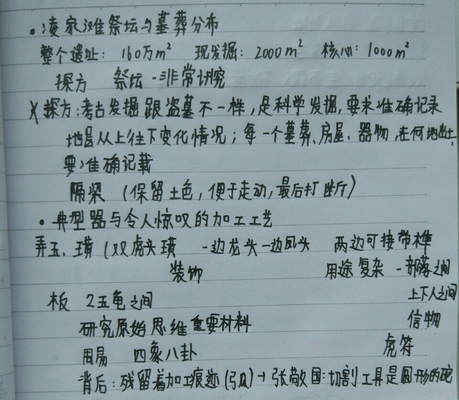 ·凌家滩祭坛与墓葬分布
整个遗址：160万m² 现发掘：2000m² 核心：1000m²
探方 祭坛-非常讲究
X探方：考古发掘跟盗墓不一样，是科学发掘，要求准确记录
地层从上往下变化情况；每一个墓葬、房屋、器物，在何地出土，
要准确记载
隔梁（保留土色，便于走动，最后打断）
·典型器与令人惊叹的加工工艺
弄玉、璜（双虎头璜 一边龙头一边凤头 两边可接带榫
装饰 用途复杂-部落之间
板 2玉龟之间 上下人之间
研究原始思维重要材料 信物
周易 四象八卦 虎符
背后：残留着加工痕迹（弧）→张敬国：切割工具是圆形的砣